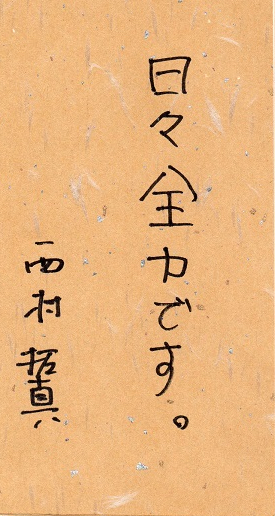 日々全力です。
西村拓真